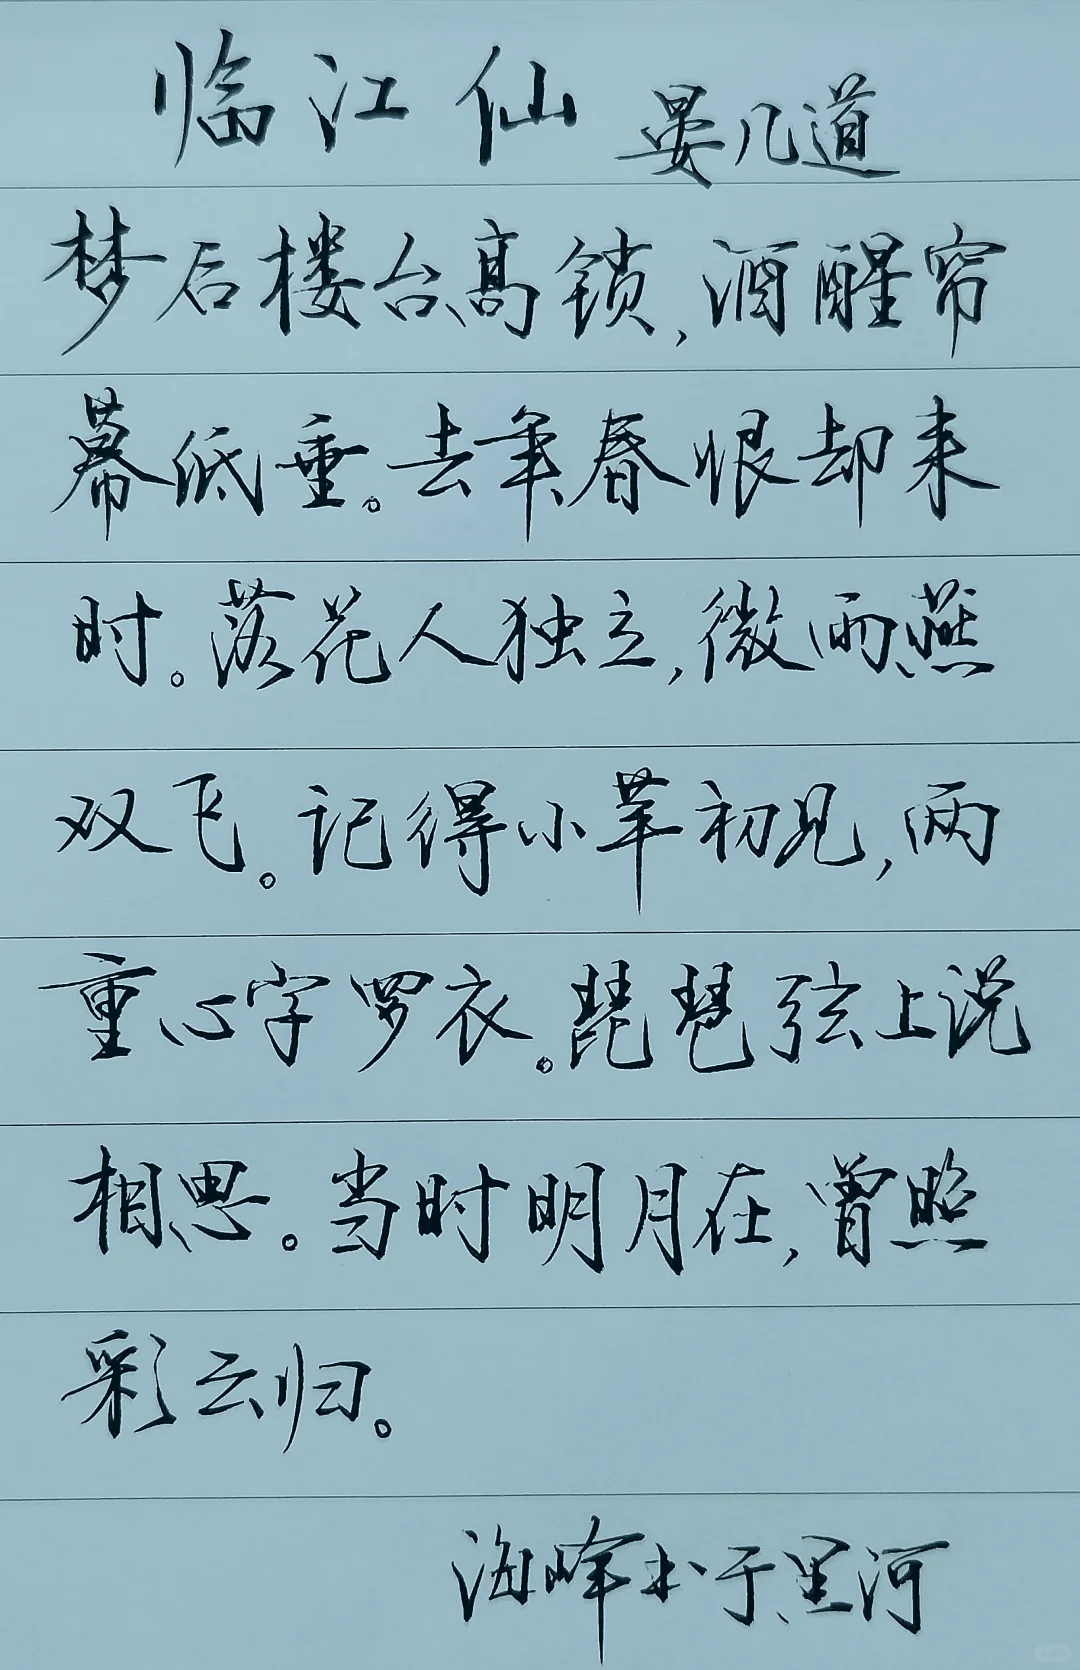 临江仙 晏几道
梦后楼台高锁,酒醒帘
幕低垂。去年春恨却来
时。落花人独立,微雨燕
双飞。记得小苹初见,两
重心字罗衣。琵琶弦上说
相思。当时明月在,曾照
彩云归。
海峰书于里河